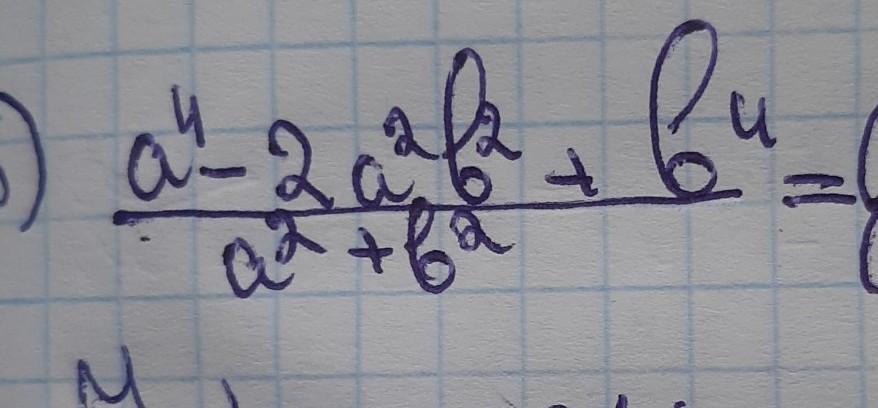 ) a⁴ - 2a²b² + b⁴ =
a² + b²